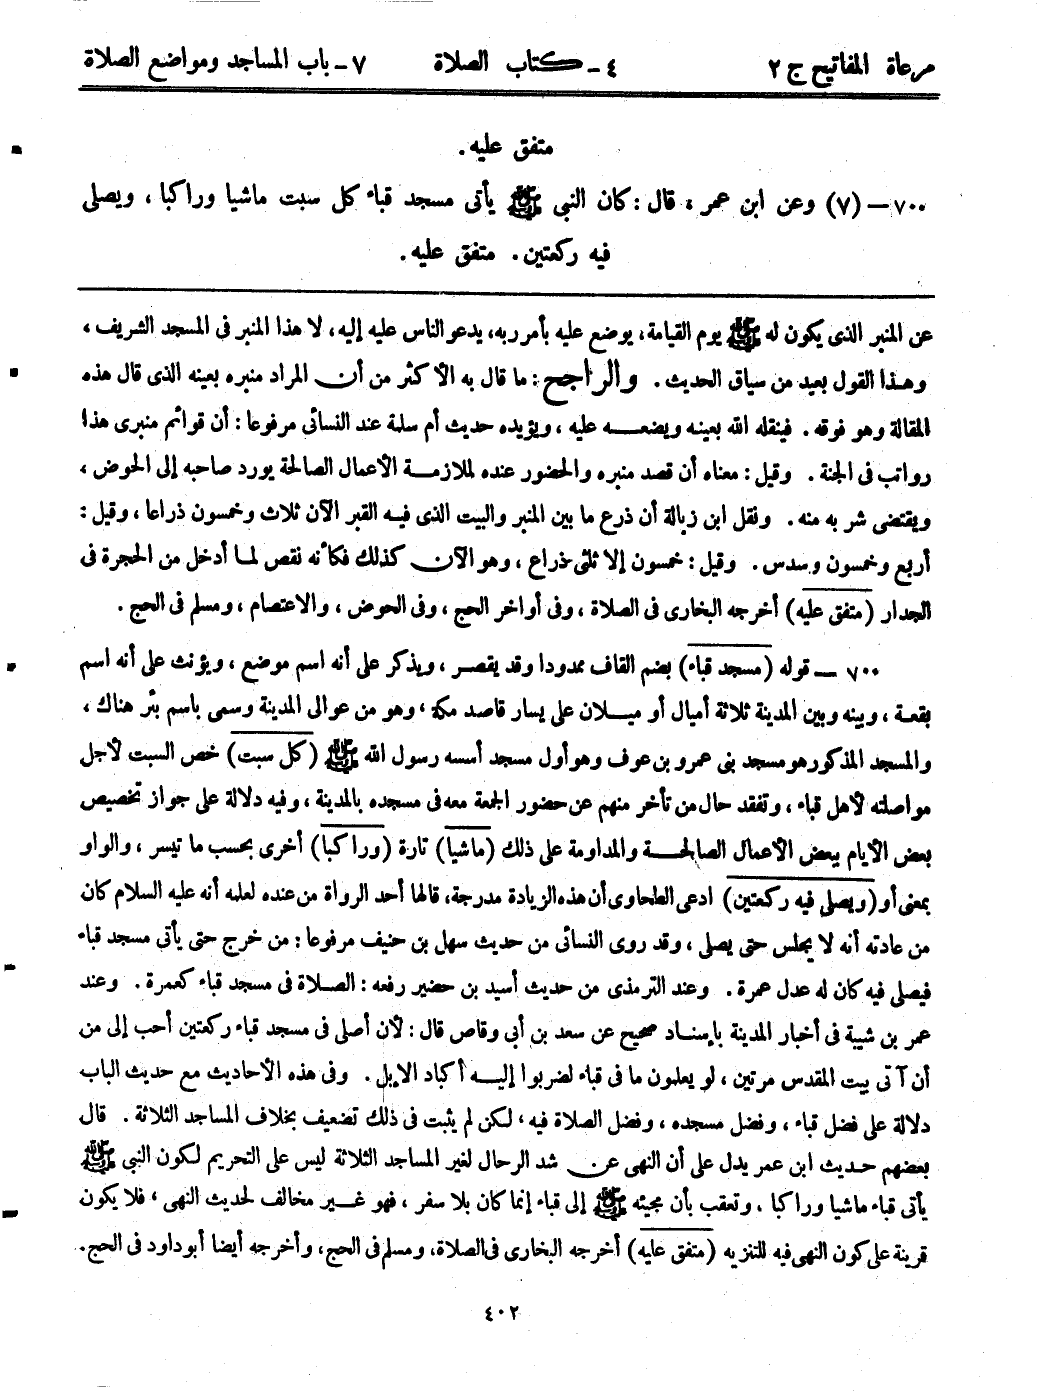 مرعاة المفاتيح ج ٢ ٤ - كتاب الصلاة ٧ - باب المساجد ومواضع الصلاة
متفق عليه .
٧٠٠ – (٧) وعن ابن عمر ، قال : كان النبى ﷺ يأتى مسجد قباء كل سبت ماشيا وراكبا ، ويصلى
فيه ركعتين . متفق عليه .
عن المنبر الذى يكون له ﷺ يوم القيامة، يوضع عليه بأمر ربه، يدعو الناس عليه إليه، لا هذا المنبر فى المسجد الشريف ،
وهذا القول بعيد من سياق الحديث . والراجح : ما قال به الأكثر من أن المراد منبره بعينه الذى قال هذه
المقالة وهو فوقه . فينقله الله بعينه ويضعه عليه ، ويؤيده حديث أم سلمة عند النسائى مرفوعا : أن قوائم منبرى هذا
رواتب فى الجنة . وقيل : معناه أن قصد منبره والحضور عنده لملازمة الأعمال الصالحة يورد صاحبه إلى الحوض ،
ويقتضى شربه منه . ونقل ابن زبالة أن ذرع ما بين المنبر والبيت الذى فيه القبر الآن ثلاث وخمسون ذراعا ، وقيل :
أربع وخمسون وسدس . وقيل : خمسون إلا ثلثى ذراع ، وهو الآن كذلك فكأنه نقص لما أدخل من الحجرة فى
الجدار (متفق عليه) أخرجه البخارى فى الصلاة ، وفى أواخر الحج ، وفى الحوض ، والاعتصام ، ومسلم فى الحج .
٧٠٠ – قوله (مسجد قباء) بضم القاف ممدودا وقد يقصر ، ويذكر على أنه اسم موضع ، ويؤنث على أنه اسم
بقعة ، وبينه وبين المدينة ثلاثة أميال أو ميلان على يسار قاصد مكة ، وهو من عوالى المدينة وسمى باسم بئر هناك ،
والمسجد المذكور هو مسجد بنى عمرو بن عوف وهو أول مسجد أسسه رسول الله ﷺ (كل سبت) خص السبت لأجل
مواصلته لأهل قباء ، وتفقد حال من تأخر منهم عن حضور الجمعة معه فى مسجده بالمدينة ، وفيه دلالة على جواز تخصيص
بعض الأيام ببعض الأعمال الصالحة والمداومة على ذلك (ماشيا) تارة (وراكبا) أخرى بحسب ما تيسر ، والواو
بمعنى أو (ويصلى فيه ركعتين) ادعى الطحاوى أن هذه الزيادة مدرجة، قالها أحد الرواة من عنده لعلمه أنه عليه السلام كان
من عادته أنه لا يجلس حتى يصلى ، وقد روى النسائى من حديث سهل بن حنيف مرفوعا : من خرج حتى يأتى مسجد قباء
فيصلى فيه كان له عدل عمرة . وعند الترمذى من حديث أسيد بن حضير رفعه : الصلاة فى مسجد قباء كعمرة . وعند
عمر بن شيبة فى أخبار المدينة بإسناد صحيح عن سعد بن أبى وقاص قال : لأن أصلى فى مسجد قباء ركعتين أحب إلى من
أن آتى بيت المقدس مرتين ، لو يعلمون ما فى قباء لضربوا إليه أكباد الإبل . وفى هذه الأحاديث مع حديث الباب
دلالة على فضل قباء ، وفضل مسجده ، وفضل الصلاة فيه ، لكن لم يثبت فى ذلك تضعيف بخلاف المساجد الثلاثة . قال
بعضهم حديث ابن عمر يدل على أن النهى عن شد الرحال لغير المساجد الثلاثة ليس على التحريم لكون النبى ﷺ
يأتى قباء ماشيا وراكبا ، وتعقب بأن مجيئه ﷺ إلى قباء إنما كان بلا سفر ، فهو غير مخالف لحديث النهى ، فلا يكون
قرينة على كون النهى فيه للتنزيه (متفق عليه) أخرجه البخارى فى الصلاة، ومسلم فى الحج، وأخرجه أيضا أبوداود فى الحج.
٤٠٢